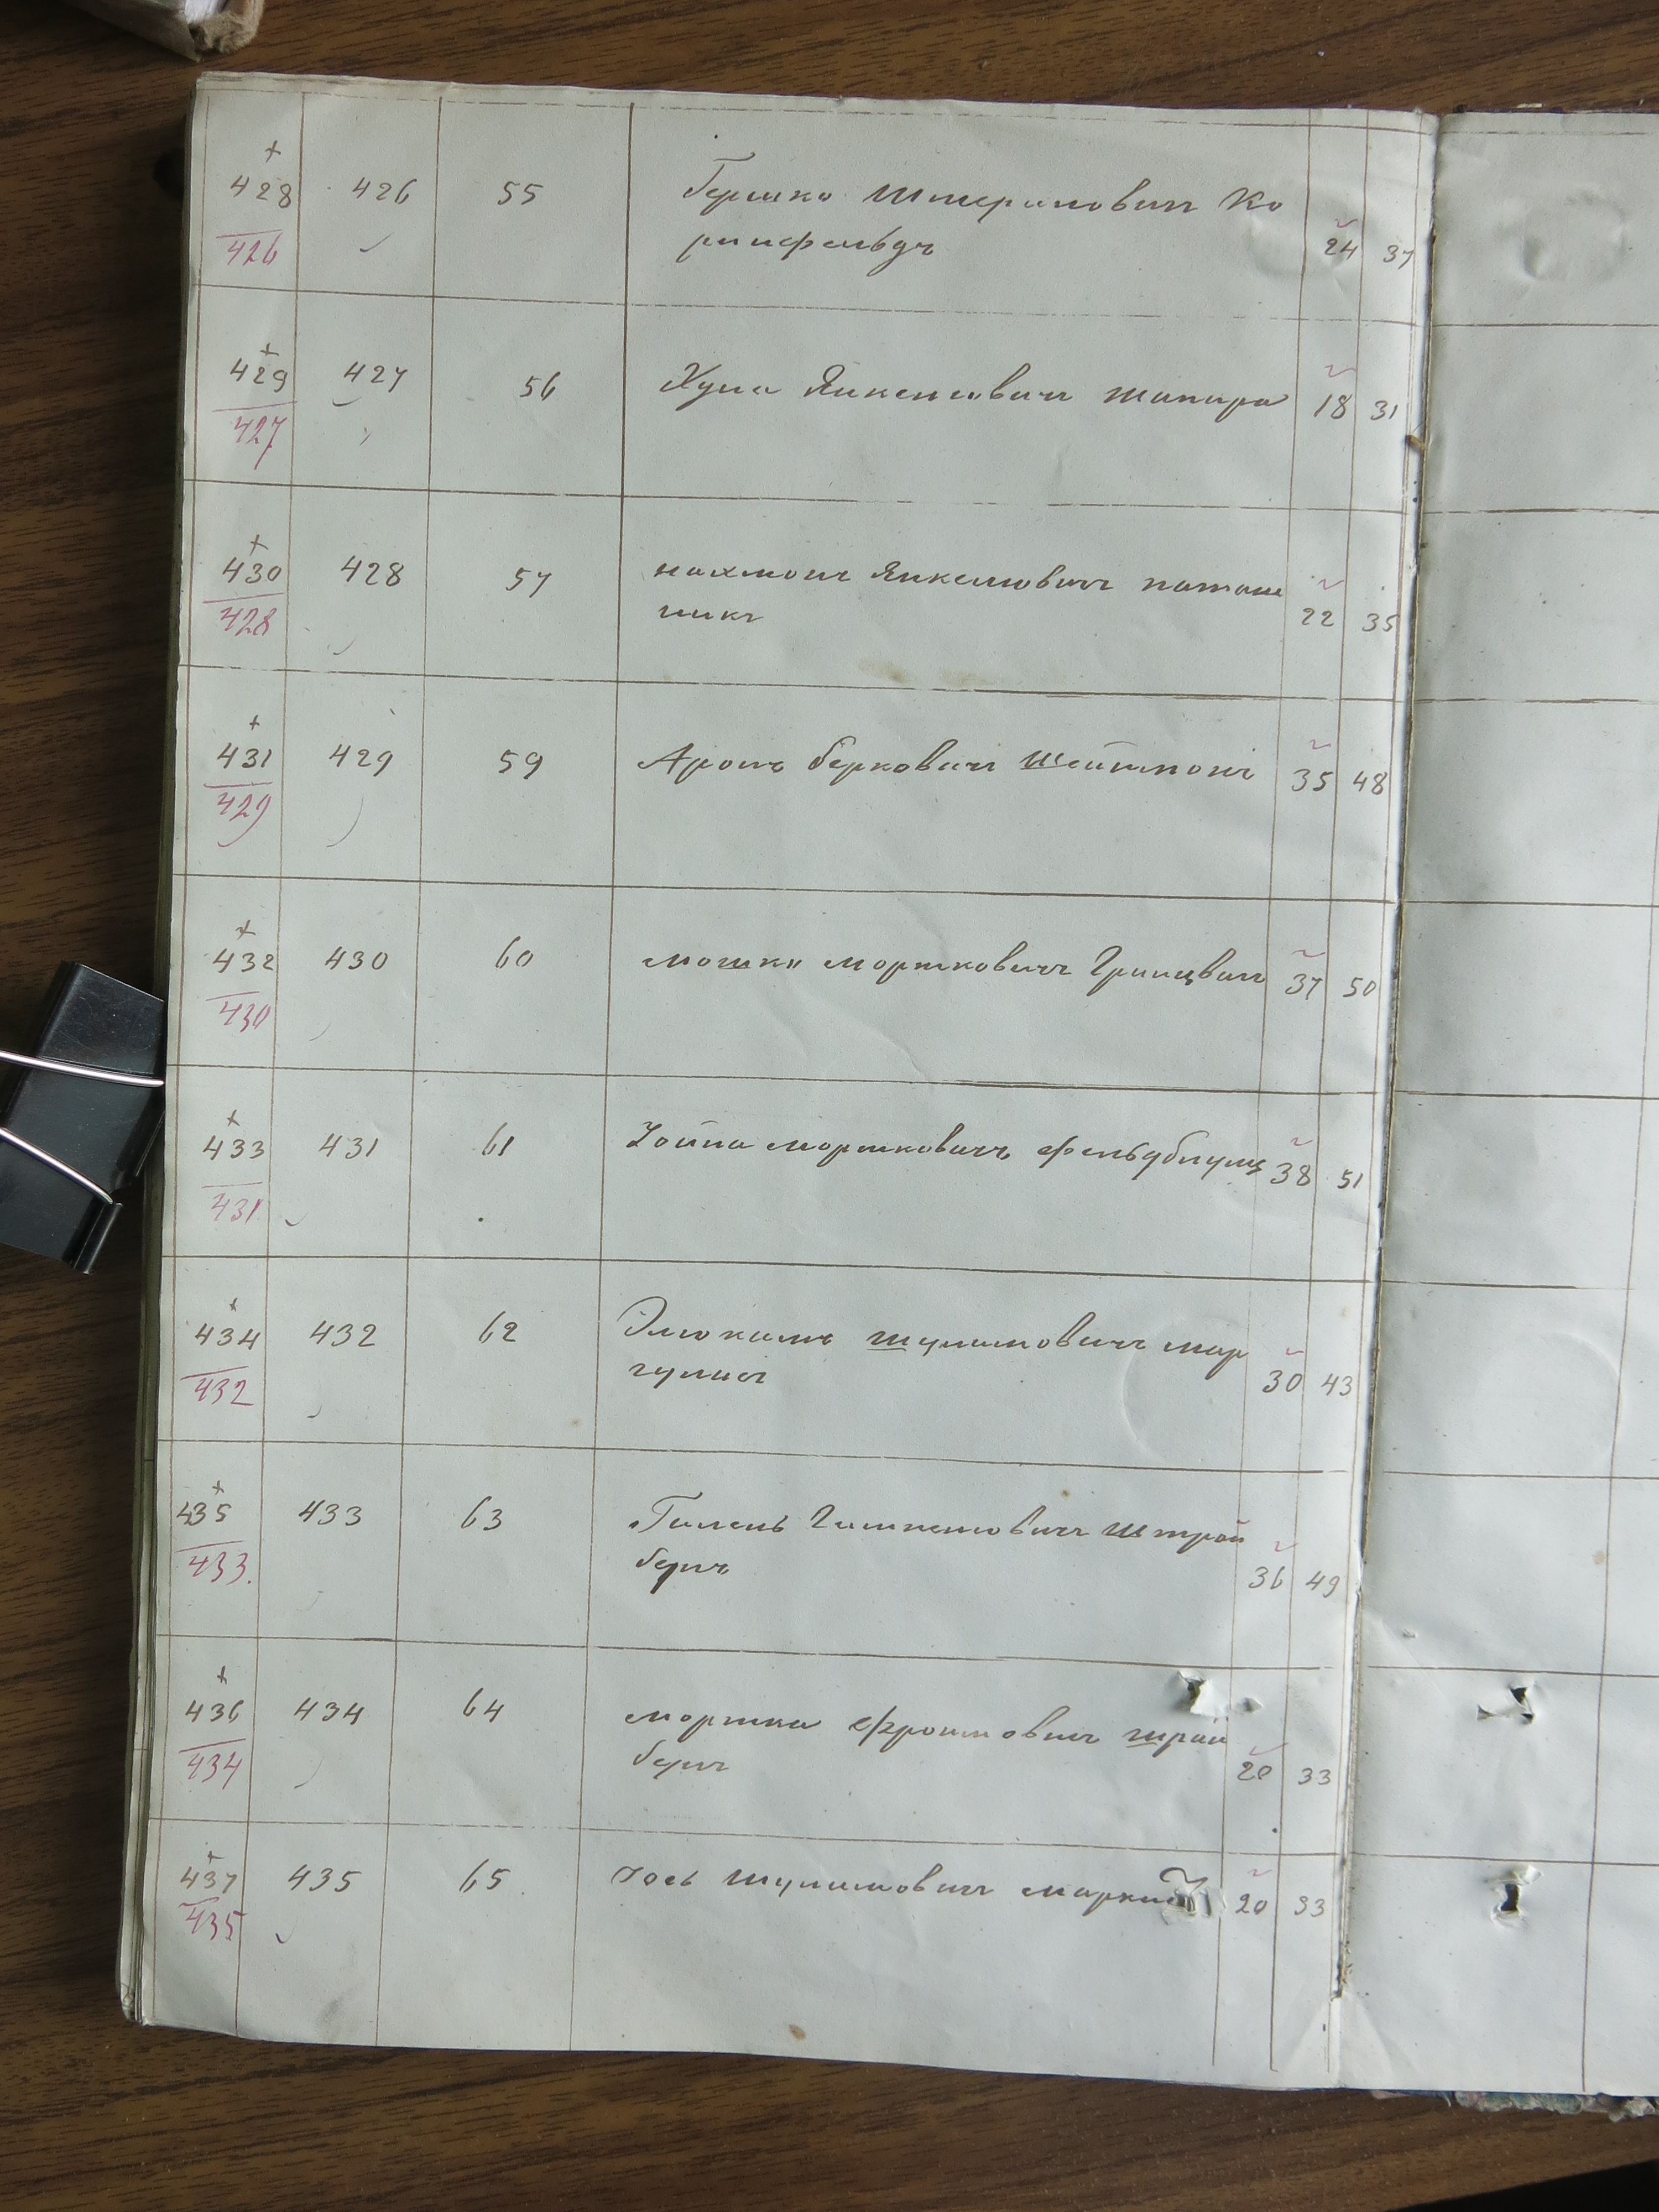 428 426 55 Гершко Шмераловичъ Ко
426 ринфельдъ 24 37
429 427 56 Хуна Янкелевичъ Шапира 18 31
427
430 428 57 Нахманъ Янкелевичъ Паташ
428 никъ 22 35
431 429 59 Аронъ Берковичъ 35 48
429
432 430 60 Мошко Моршковичъ 37 50
430
433 431 61 Хойна Моршковичъ Фельдблумъ 38 51
431
434 432 62 Шулимовичъ Мар
432 гулисъ 30 43
435 433 63 Штрай
433 беръ 36 49
436 434 64 Моршка Фроимовичъ Шрай
434 беръ 20 33
437 435 65 Іось Шулимовичъ 20 33
435